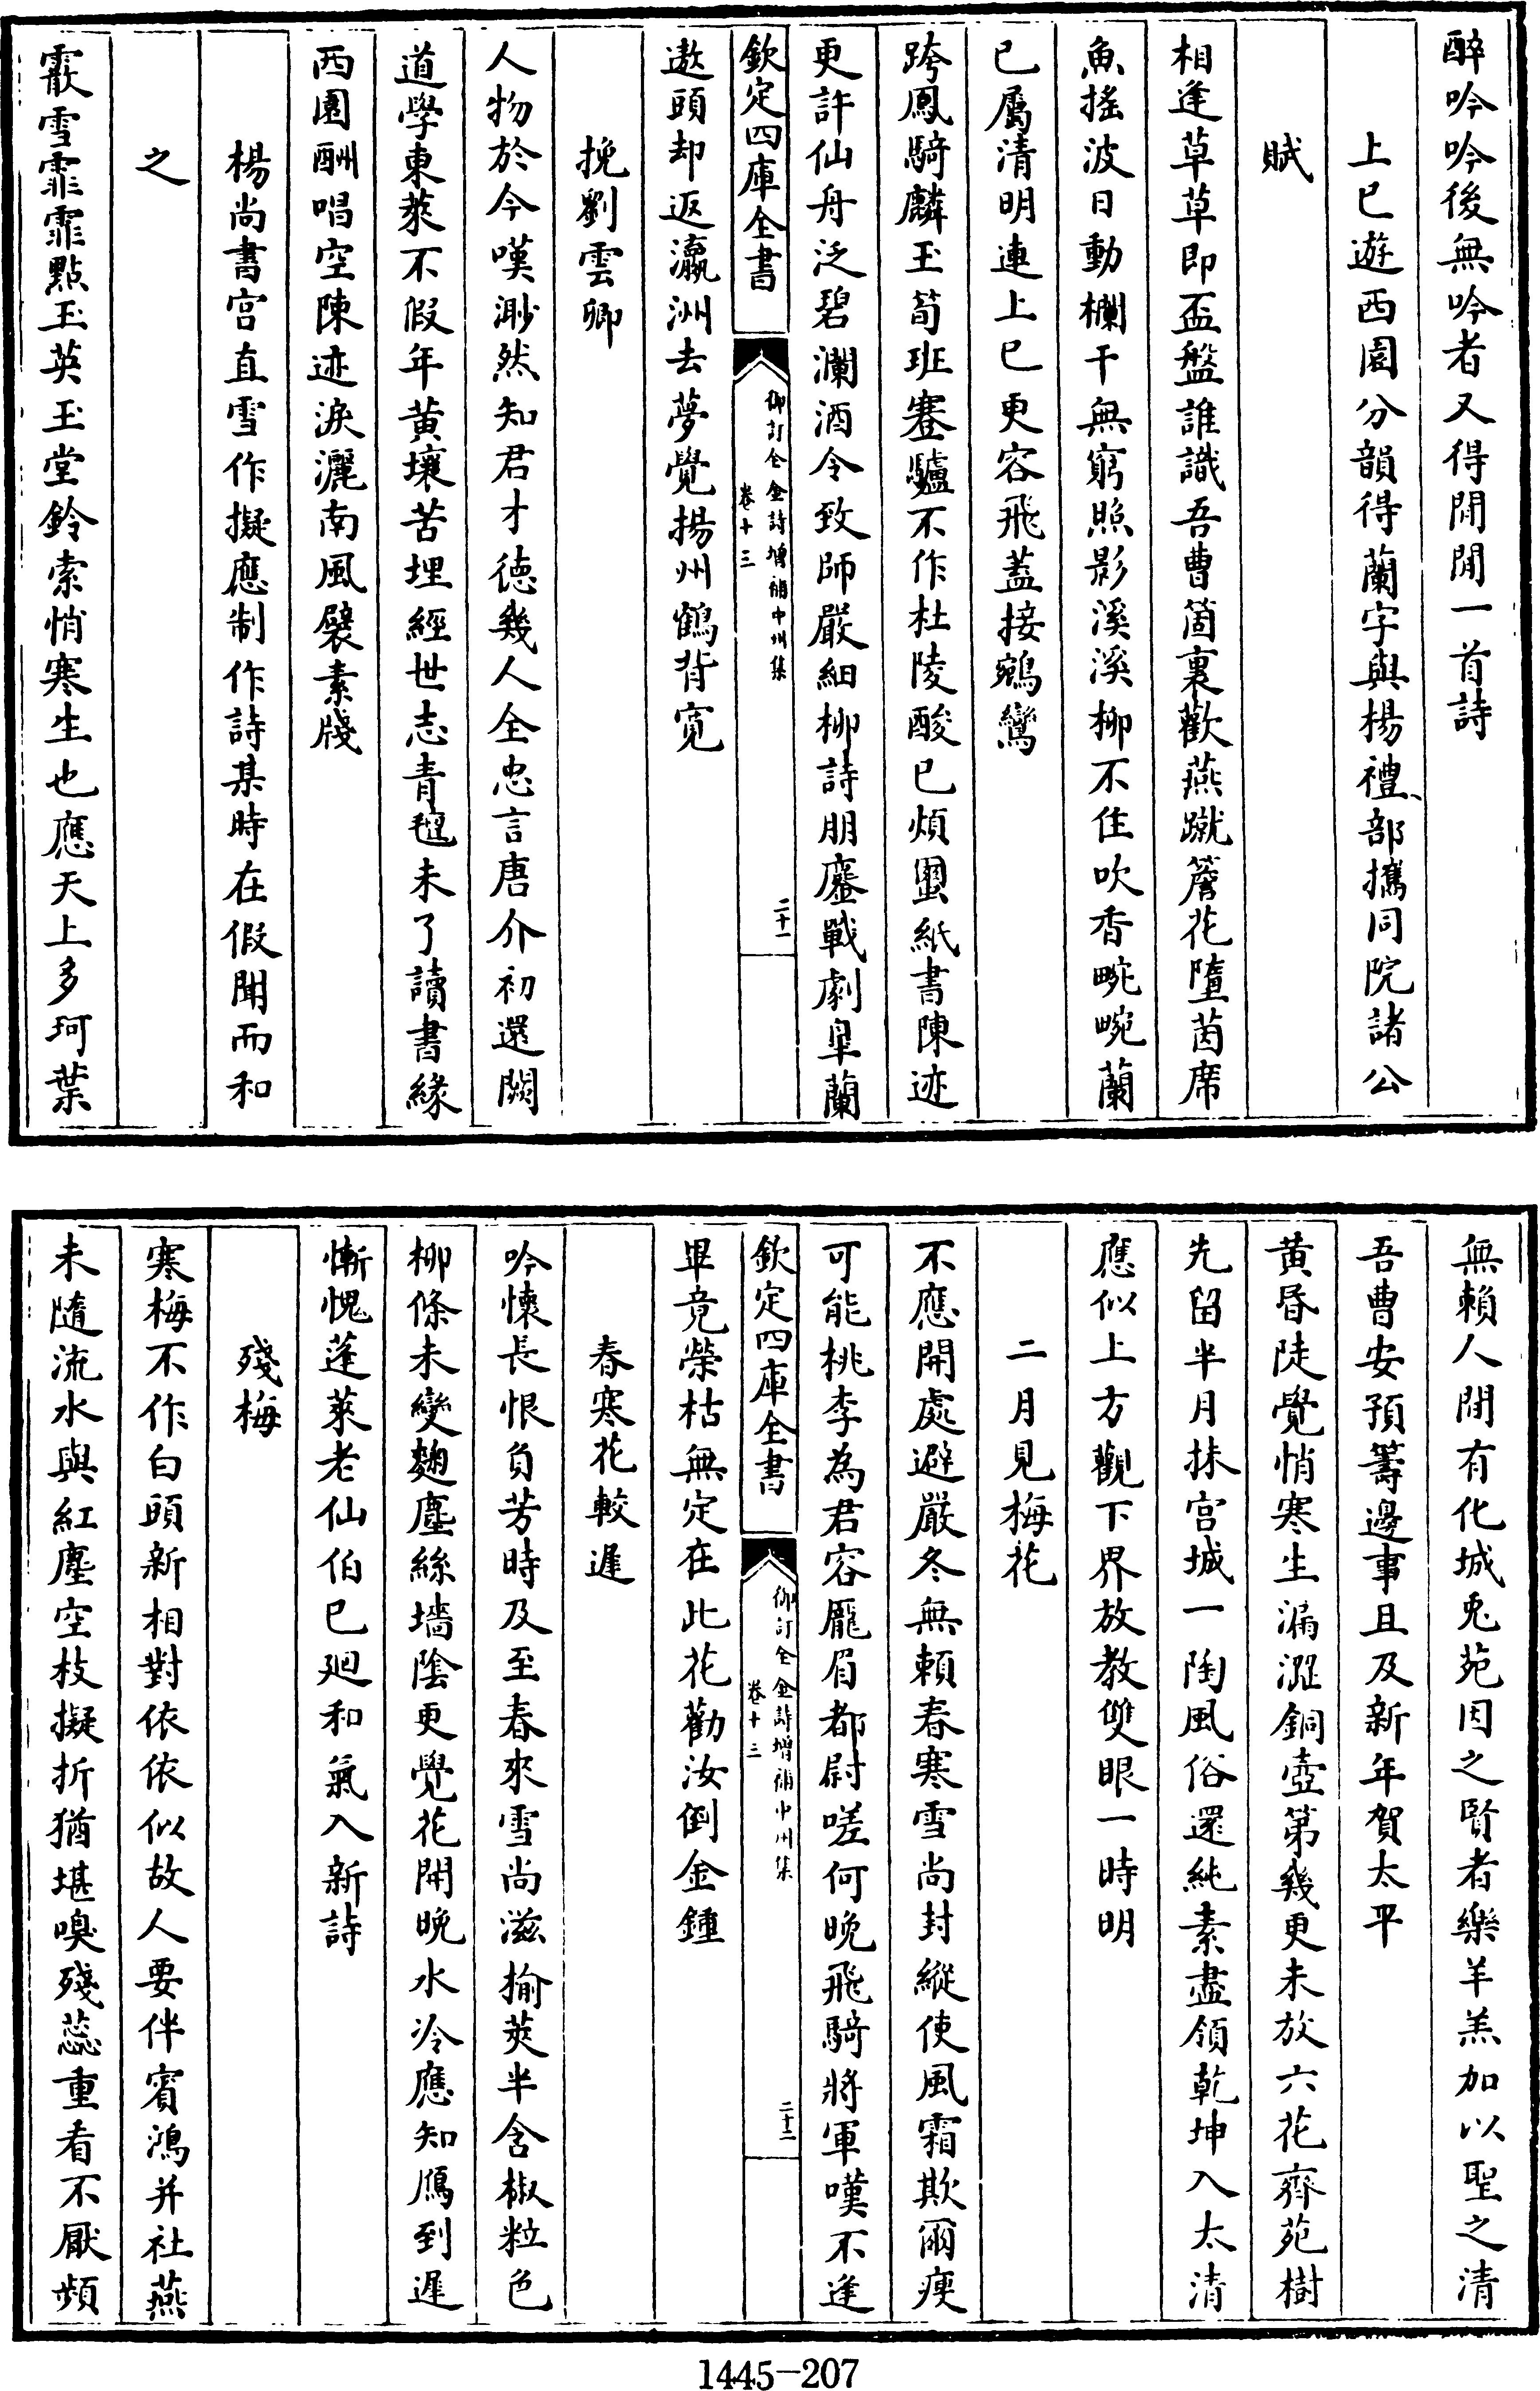 醉吟吟後無吟者又得閒閒一首詩
上巳遊西園分韻得蘭字與楊禮部攜同院諸公
賦
相逢草草即盃盤誰識吾曹箇裏歡燕蹴簷花墮茵席
魚搖波日動欄干無窮照影溪溪柳不住吹香畹畹蘭
已屬清明連上巳更容飛蓋接鵷鸞
跨鳳騎麟玉荀班蹇驢不作杜陵酸已煩蠒紙書陳迹
更許仙舟泛碧瀾酒令致師嚴細柳詩朋鏖戰劇皐蘭
欽定四庫全書
御訂全金詩增補中州集
卷十三
二十一
遨頭却返瀛洲去夢覺揚州鶴背寛
挽劉雲卿
人物於今嘆渺然知君才徳幾人全忠言唐介初還闕
道學東萊不假年黄壤苦埋經世志青氊未了讀書緣
西園酬唱空陳迹淚灑南風襞素牋
楊尚書宫直雪作擬應制作詩某時在假聞而和
之
霰雪霏霏點玉英玉堂鈴索悄寒生也應天上多珂葉
無賴人間有化城兎苑因之賢者樂羊羔加以聖之清
吾曹安預籌邊事且及新年賀太平
黄昏陡覺悄寒生漏澀銅壺第幾更未放六花齊苑樹
先留半月抹宫城一陶風俗還純素盡領乾坤入太清
應似上方觀下界放教雙眼一時明
二月見梅花
不應開處避嚴冬無賴春寒雪尚封縱使風霜欺爾瘦
可能桃李為君容龎眉都尉嗟何晚飛騎將軍嘆不逢
欽定四庫全書
御訂全金詩增補中州集
卷十三
二十二
畢竟榮枯無定在此花勸汝倒金鍾
春寒花較遲
吟懷長恨負芳時及至春來雪尚滋榆莢半含椒粒色
柳條未變麴塵絲墻陰更覺花開晚水冷應知鴈到遲
慚愧蓬萊老仙伯已廻和氣入新詩
殘梅
寒梅不作白頭新相對依依似故人要伴賓鴻并社燕
未隨流水與紅塵空枝擬折猶堪嗅殘蕊重看不厭頻
1445-207